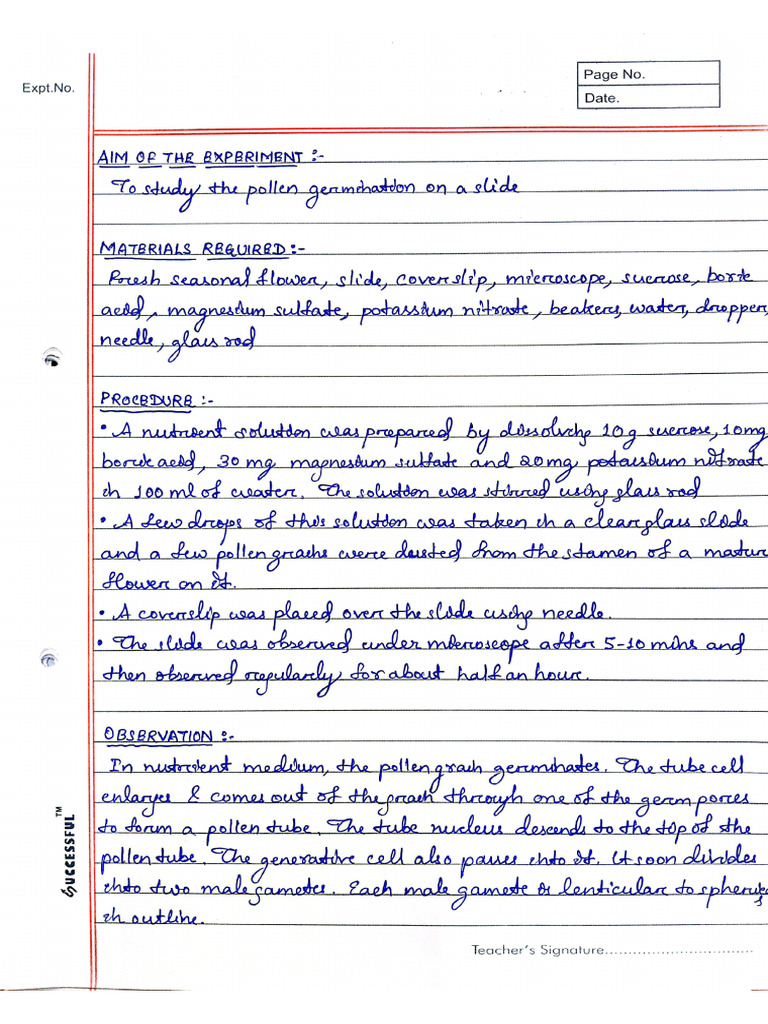 Expt.No.
Page No.
Date.
AIM OF THE EXPERIMENT :-
To study the pollen germination on a slide
MATERIALS REQUIRED:-
Fresh seasonal flower, slide, coverslip, microscope, sucrose, boric
acid, magnesium sulfate, potassium nitrate, beakers, water, dropper,
needle, glass rod
PROCEDURE :-
• A nutrient solution was prepared by dissolving 10g sucrose, 10mg
boric acid, 30 mg magnesium sulfate and 20mg potassium nitrate
in 100 ml of water. The solution was stirred using glass rod
• A few drops of this solution was taken in a clear glass slide
and a few pollen grains were dusted from the stamen of a mature
flower on it.
• A coverslip was placed over the slide using needle.
• The slide was observed under microscope after 5-10 mins and
then observed regularly for about half an hour.
OBSERVATION :-
In nutrient medium, the pollen grain germinates. The tube cell
enlarges & comes out of the grain through one of the germ pores
to form a pollen tube. The tube nucleus descends to the top of the
pollen tube. The generative cell also passes into it. It soon divides
into two male gametes. Each male gamete is lenticular to spherical
in outline.
SUCCESSFUL™
Teacher's Signature................................